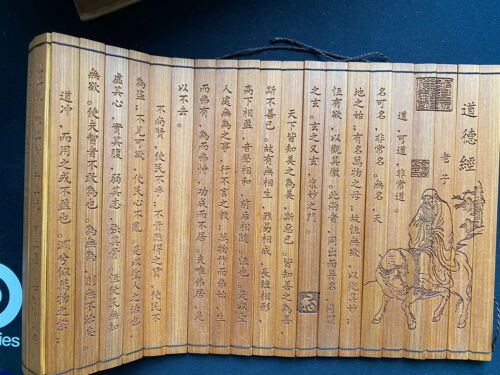 道德經
老子
道，可道，非常道。
名可名，非常名。無名，天
地之始；有名萬物之母；故恆無欲，以觀其妙；
恆有欲，以觀其徼。此兩者，同出而异名，同謂
之玄。玄之又玄，眾妙之門。
天下皆知美之為美，斯惡已。皆知善之為善，
斯不善已。故有無相生，難易相成，長短相形，
高下相盈，音聲相和，前后相隨，恆也。是以聖
人處無為之事，行不言之教；萬物作而弗始，生
而弗有，為而弗恃，功成而不居。夫唯弗居，是
以不去。
不尚賢，使民不爭；不貴難得之貨，使民不
為盜；不見可欲，使民心不亂。是以聖人之治也，
虛其心，實其腹，弱其志，強其骨。恆使民無知
無欲。使夫智者不敢為也。為無為，則無不治矣。
道沖，而用之或不盈也。淵兮似萬物之宗；
ies